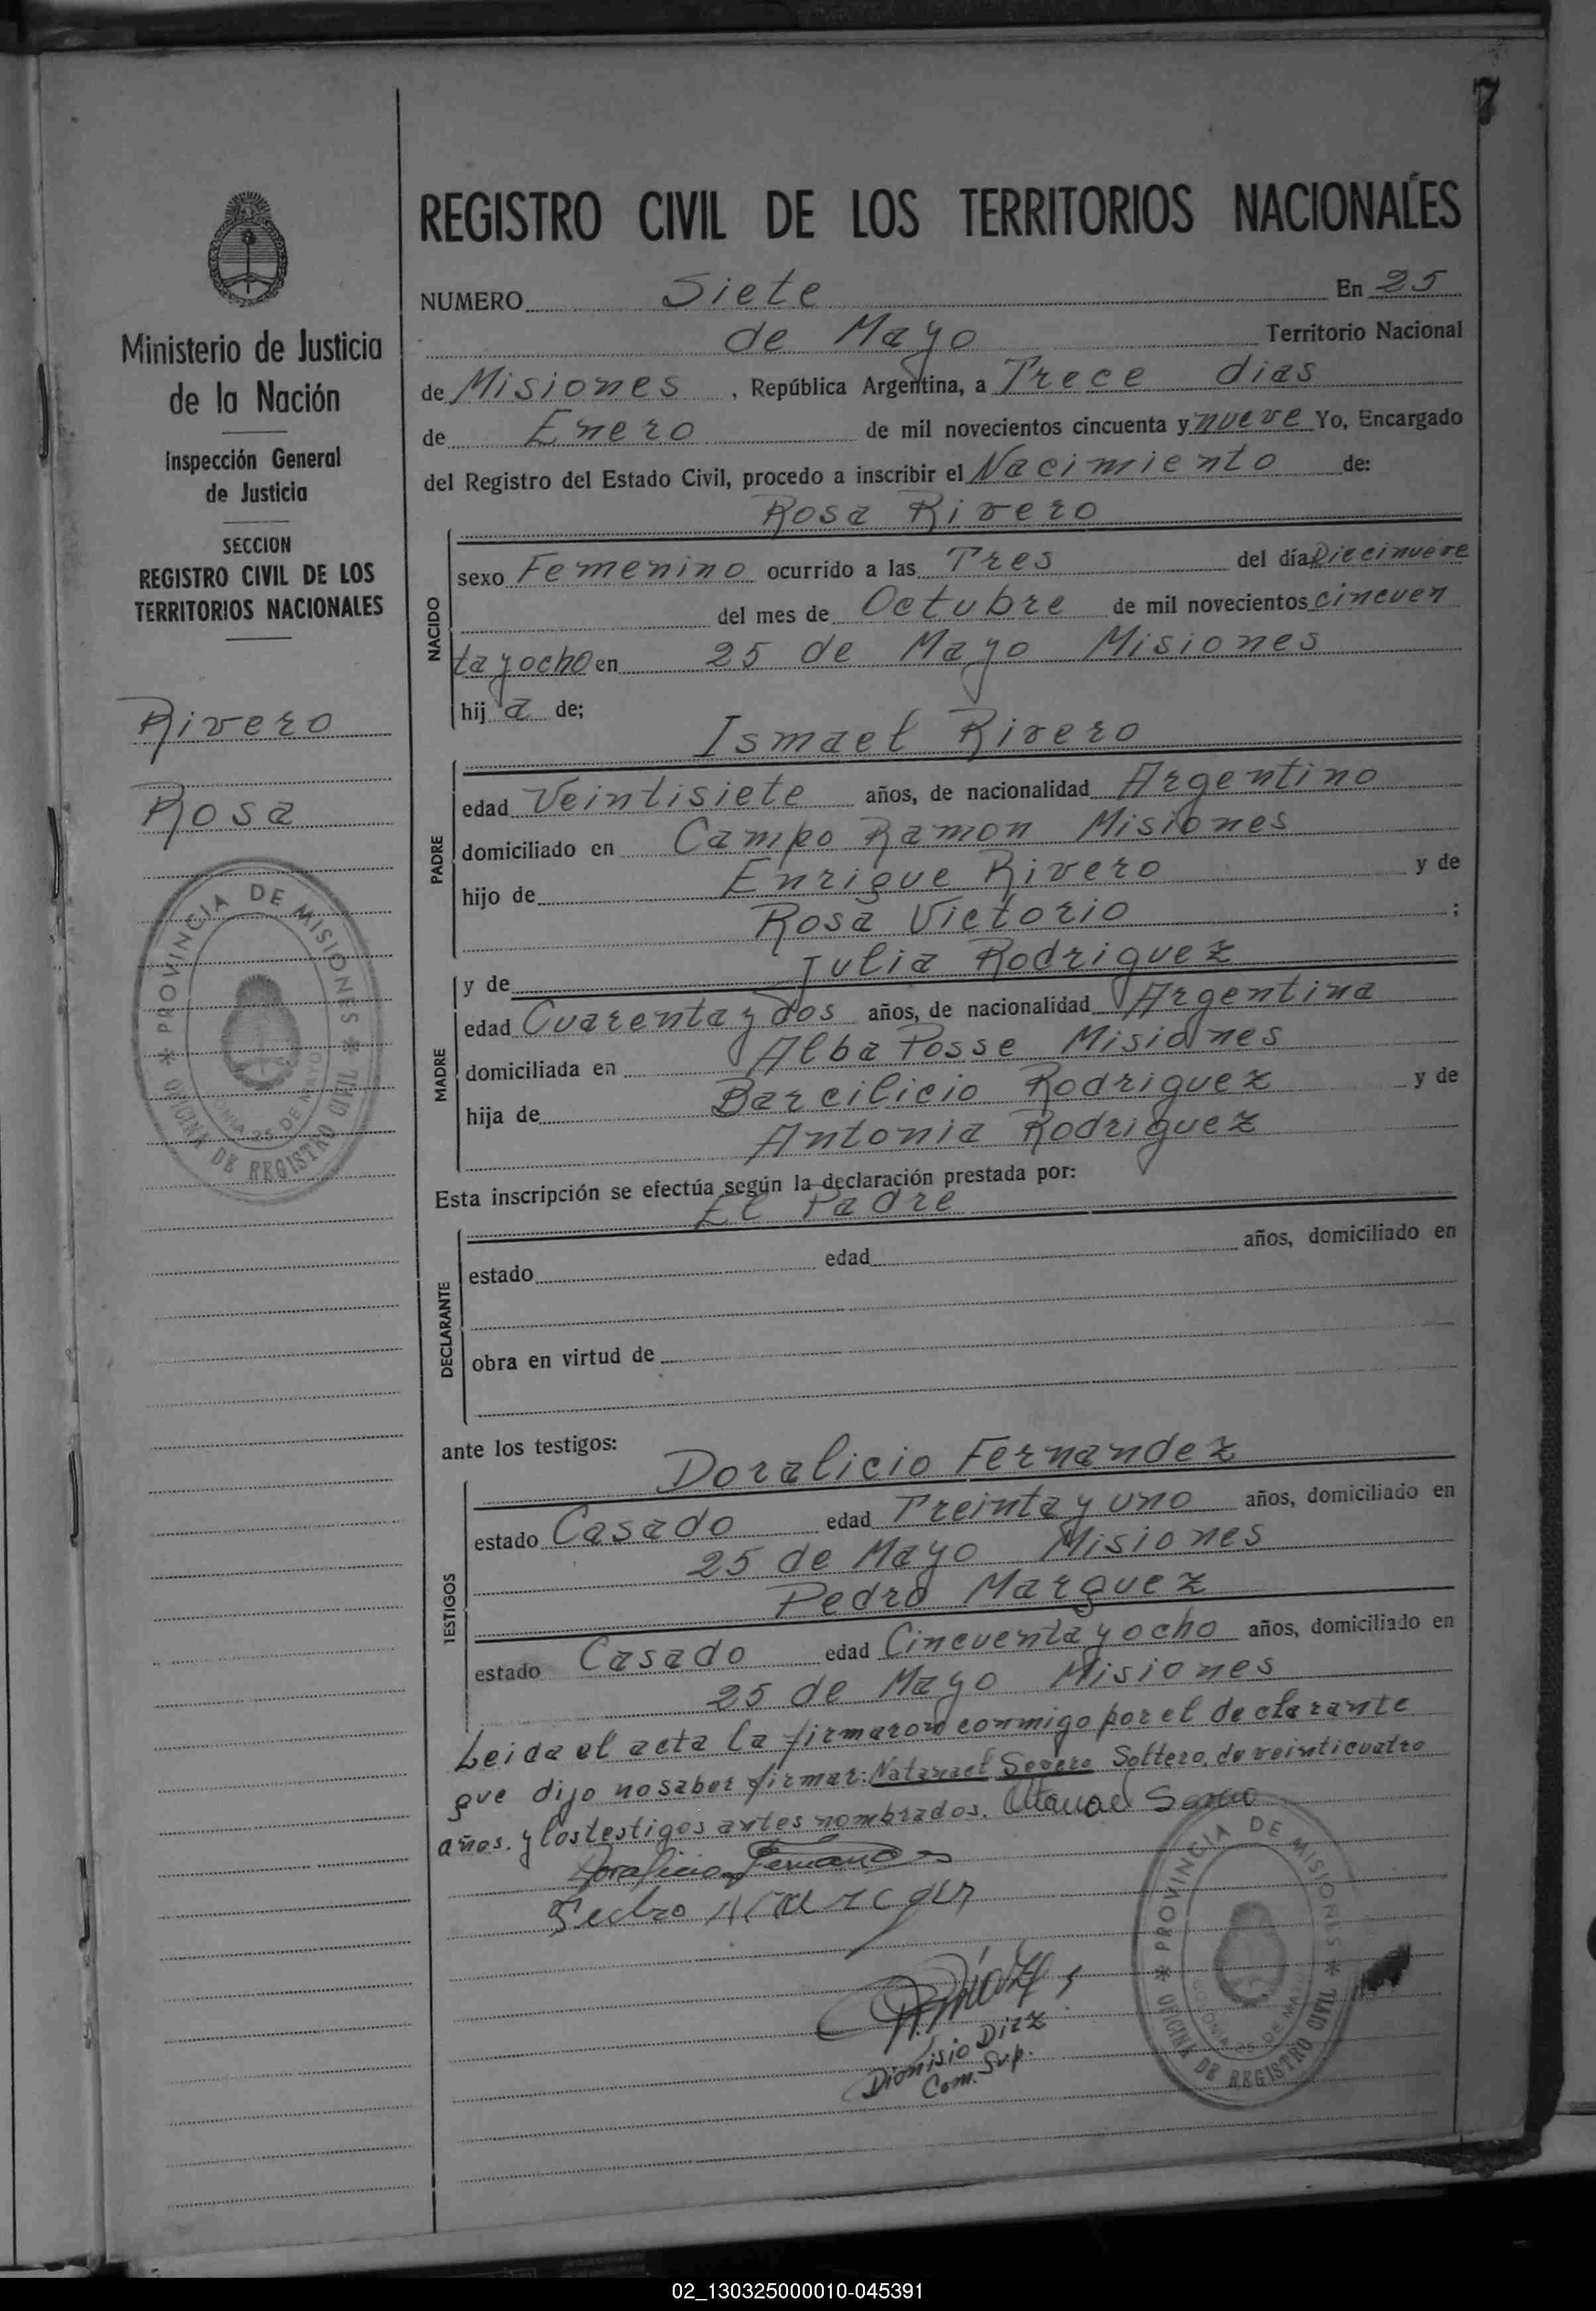 7
Ministerio de Justicia
de la Nación
Inspección General
de Justicia
SECCION
REGISTRO CIVIL DE LOS
TERRITORIOS NACIONALES
Rivero
Rosa
PROVINCIA DE MISIONES
OFICINA DE REGISTRO CIVIL
COLONIA 25 DE MAYO
REGISTRO CIVIL DE LOS TERRITORIOS NACIONALES
NUMERO Siete En 25
de Mayo Territorio Nacional
de Misiones, República Argentina, a Trece dias
de Enero de mil novecientos cincuenta y nueve Yo, Encargado
del Registro del Estado Civil, procedo a inscribir el Nacimiento de:
Rosa Rivero
NACIDO
sexo Femenino ocurrido a las Tres del día Diecinueve
del mes de Octubre de mil novecientos cincuen
ta y ocho en 25 de Mayo Misiones
hij a de;
Ismael Rivero
PADRE
edad Veintisiete años, de nacionalidad Argentino
domiciliado en Campo Ramon Misiones
hijo de Enrique Rivero y de
Rosa Victorio ;
y de Julia Rodriguez
MADRE
edad Cuarenta y dos años, de nacionalidad Argentina
domiciliada en Alba Posse Misiones
hija de Barcilicio Rodriguez y de
Antonia Rodriguez
Esta inscripción se efectúa según la declaración prestada por:
El Padre
DECLARANTE
estado edad años, domiciliado en
obra en virtud de
ante los testigos:
Doralicio Fernandez
TESTIGOS
estado Casado edad Treinta y uno años, domiciliado en
25 de Mayo Misiones
Pedro Marquez
estado Casado edad Cincuenta y ocho años, domiciliado en
25 de Mayo Misiones
Leida el acta la firmaron conmigo por el declarante
que dijo no saber firmar: Natanael Severo Soltero, de veinticuatro
años. y los testigos antes nombrados.
Doralicio Fernandes
Pedro
Dionisio Diaz
Com. Sup.
PROVINCIA DE MISIONES
OFICINA DE REGISTRO CIVIL
COLONIA 25 DE MAYO
02_130325000010-045391